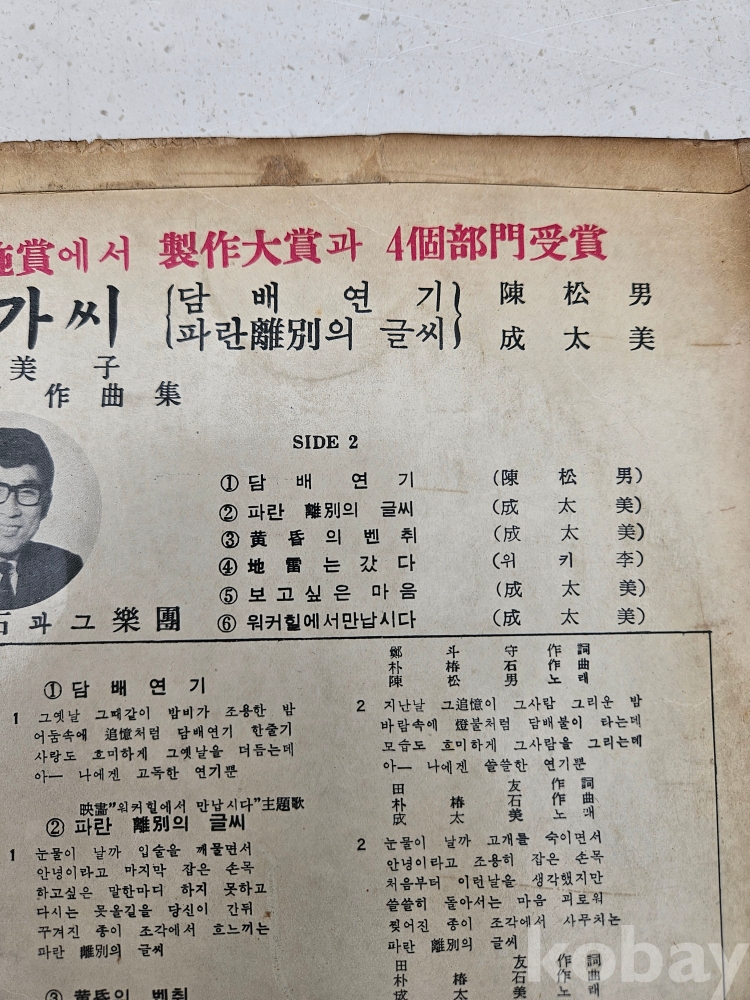 賞에서 製作大賞과 4個部門受賞
가씨 {담배연기 파란離別의 글씨} 陳松男 成太美
美子
作曲集
SIDE 2
① 담배연기 (陳松男)
② 파란 離別의 글씨 (成太美)
③ 黄昏의 벤취 (成太美)
④ 地雷는 갔다 (위키李)
⑤ 보고싶은 마음 (成太美)
⑥ 워커힐에서만납시다 (成太美)
石과 그 樂團
鄭斗守 作詞
朴椿石 作曲
陳松男 노래
① 담배연기
1 그옛날 그때같이 밤비가 조용한 밤
어둠속에 追憶처럼 담배연기 한줄기
사랑도 흐미하게 그옛날을 더듬는데
아— 나에겐 고독한 연기뿐
2 지난날 그追憶이 그사람 그리운 밤
바람속에 燈불처럼 담배불이 타는데
모습도 흐미하게 그사람을 그리는데
아— 나에겐 쓸쓸한 연기뿐
田友 作詞
朴椿石 作曲
成太美 노래
映畵"워커힐에서 만납시다"主題歌
② 파란 離別의 글씨
1 눈물이 날까 입술을 깨물면서
안녕이라고 마지막 잡은 손목
하고싶은 말한마디 하지 못하고
다시는 못올길을 당신이 간뒤
꾸겨진 종이 조각에서 흐느끼는
파란 離別의 글씨
2 눈물이 날까 고개를 숙이면서
안녕이라고 조용히 잡은 손목
처음부터 이런날을 생각했지만
쓸쓸히 돌아서는 마음 괴로워
찢어진 종이 조각에서 사무치는
파란 離別의 글씨
田友 作詞
朴椿石 作曲
成太美 노래
③ 黄昏의 벤취
kobay